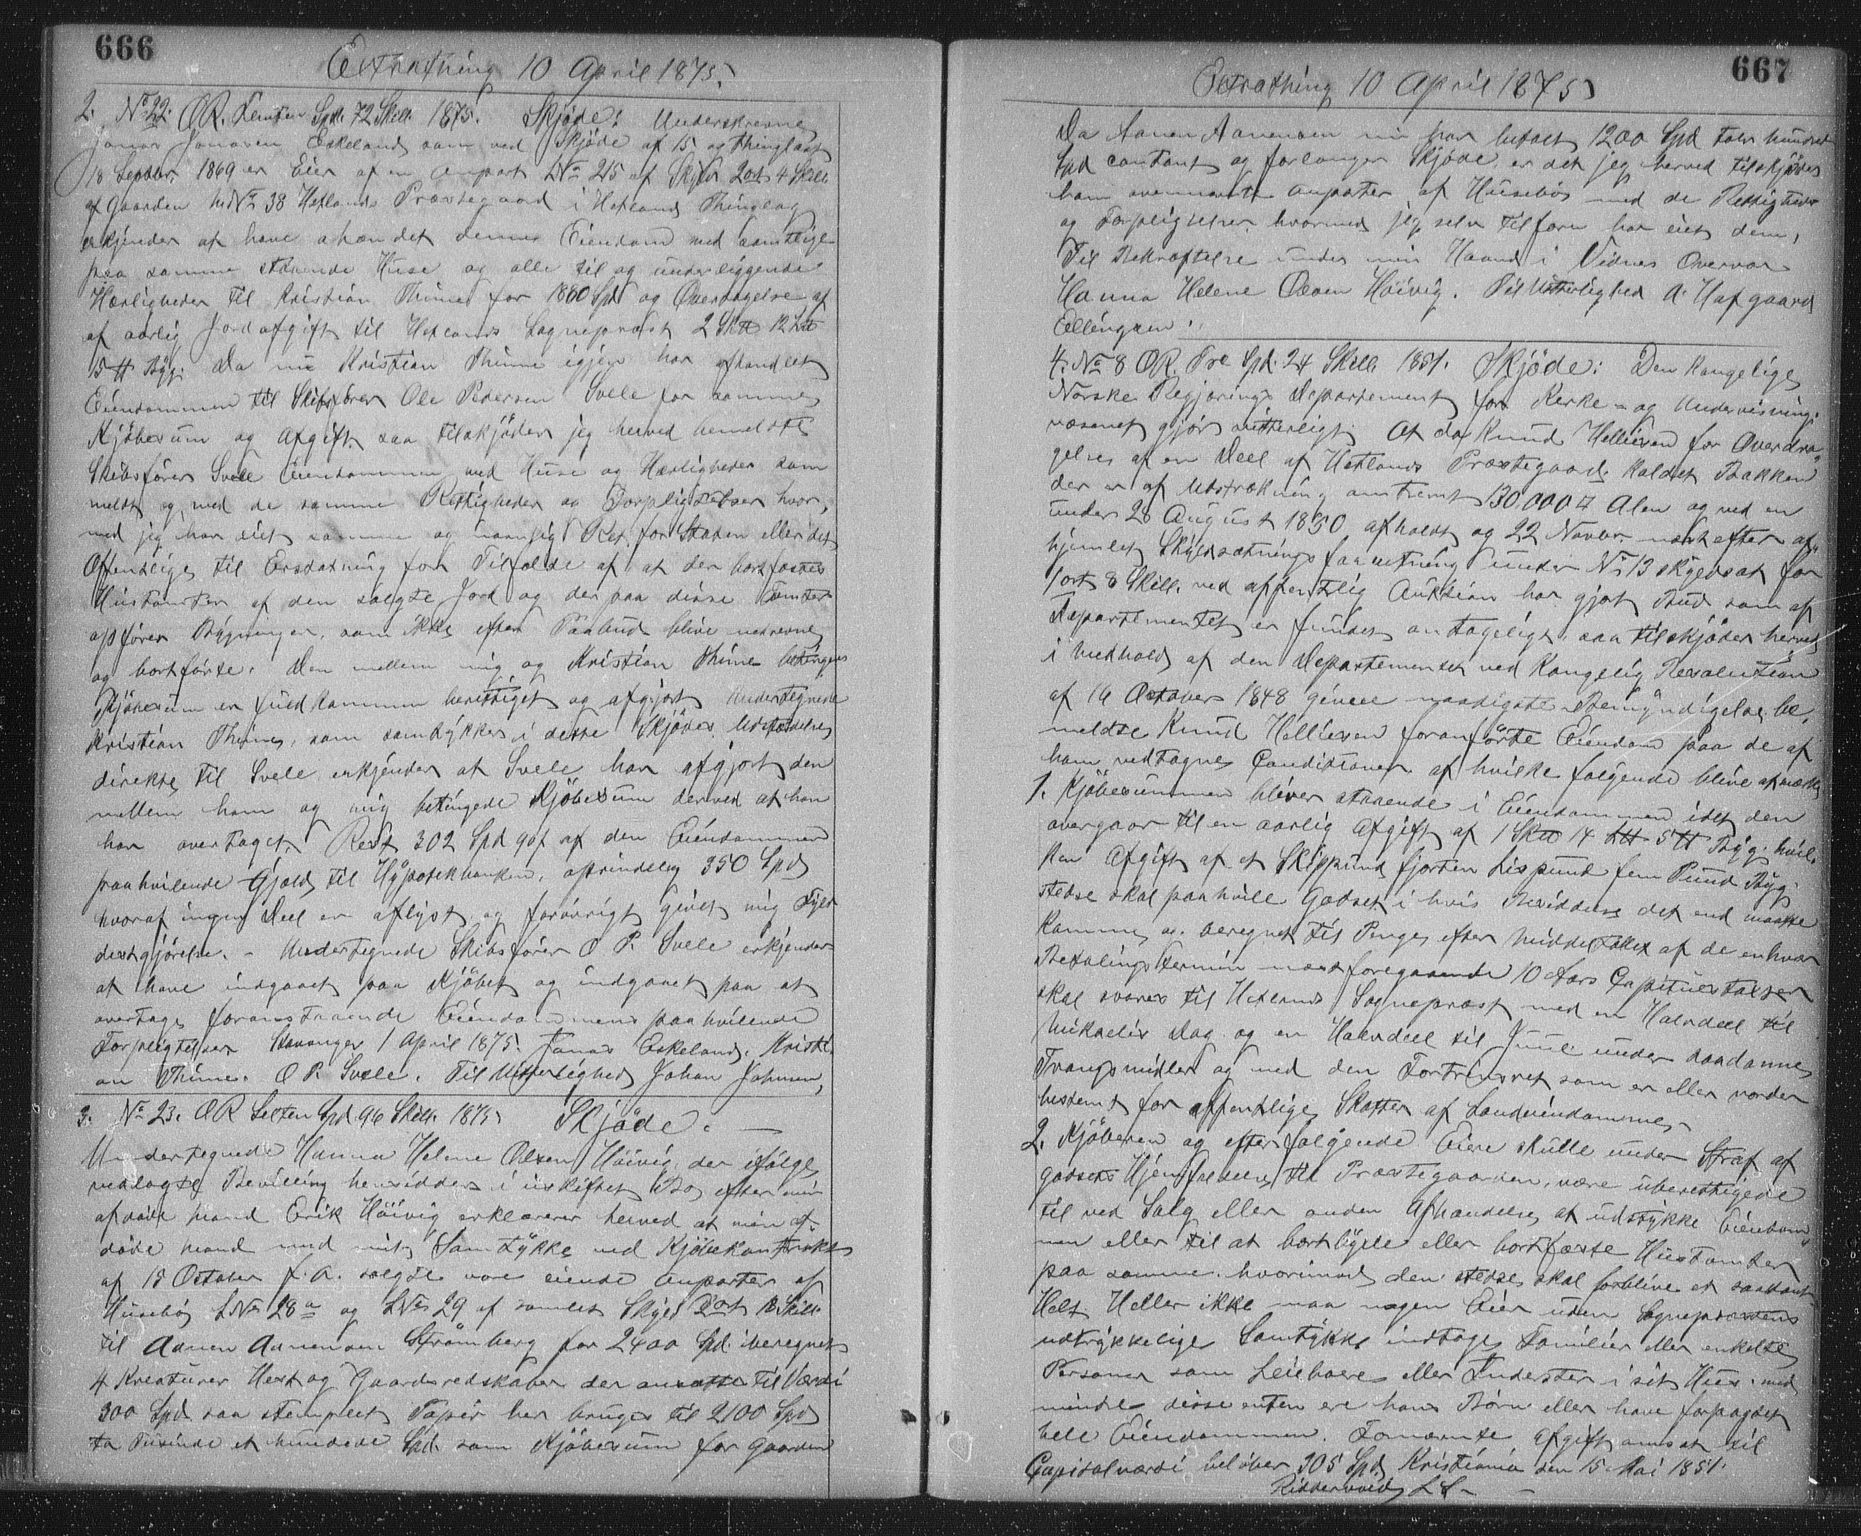 666
Extrathing 10 April 1875.
2. No 22. OR. femten Spd. 72 Skill. 1875. Skjöde: Underskrevne
Jonas Jonasen Eskeland som ved Skjöde af 15 og thinglæst
18 Septbr. 1869 er Eier af en Anpart LNo 215 af Skyld 2 ort 4 Skill
af Gaarden MNo 38 Hetlands Præstegaard i Hetland Thinglag
erkjender at have afhændet denne Eiendom med samtlige
paa samme staaende Huse og alle til og underliggende
Herligheder til Kristian Thime for 1860 Spd og Overtagelse af
af aarlig Jordafgift til Hetlands Sogneprest 2 Sk℔ 12 L℔
15 ℔ Byg. Da nu Kristian Thime igjen har afhandlet
Eiendommen til Skibsfører Ole Pedersen Svele for samme
Kjöbesum og Afgift saa tilskjöder jeg herved bemeldte
Skibsfører Svele Eiendommen med Huse og Herligheder som
meldt og med de samme Rettigheder og Forpligtelser hvor
med jeg har eiet samme og navnlig Ret for Staten eller det
Offentlige til Ersdatning for Tilfælde af at der bortfæstes
Hustomter af den solgte Jord og der paa disse Tomter
opføres Bygninger, som ikke efter Paabud blive nedrevne
og bortførte. Den mellem mig og Kristian Thime betingede
Kjöbesum er fuldkommen berettiget og afgjort. Undertegnede
Kristian Thime, som samtykker i dette Skjödes Udstædelse
direkte til Svele, erkjender at Svele har afgjort den
mellem ham og mig betingede Kjöbesum derved at han
har overtaget Rest 302 Spd 90 ß af den Eiendommen
paahvilende Gjæld til Hypotekbanken, oprindelig 350 Spd
hvoraf ingen Deel er aflyst og forövrigt givet mig Fyl-
destgjörelse. – Undertegnede Skibsfører O P. Svele erkjender
at have indgaaet paa Kjöbet og indgaaet paa at
overtage foranstaaende Eiendommens paahvilende
Forpligtelser. Stavanger 1 April 1875. Jonas Eskeland. Kristi-
an Thime. O P. Svele. Til Vitterlighed Johan Johnsen,
3. No 23. OR Sexten Spd. 96 Skill. 1875 Skjöde. –
Undertegnede Hanna Helene Olsen Höivig, der ifölge
vedlagte Bevilling hensidder i uskiftet Bo efter min
afdöde Mand Erik Höivig erklærer herved at min af-
döde Mand med mit Samtykke ved Kjöbekontrakt
af 15 October f. A. solgte vore eiende Anparter af
Husebø LNo 28a og LNo 29 af samlet Skyld Dal 1 ort 13 Skill
til Aanen Aanensen Strömberg for 2400 Spd. iberegnet
4 Kreaturer Hest og Gaardsredskaber der ansættes til Værdi
300 Spd. saa stemplet Papir her bruges til 2100 Spd
to Tusinde et hundrede Spd. som Kjöbesum for Gaarden
667
Extrathing 10 April 1875
Da Aanen Aanensen nu har betalt 1200 Spd tolv hundrede
Spd contant og forlanger Skjöde er det jeg herved tilskjöder
ham ovennævnte Anparter af Husebö med de Rettigheder
og Forpligtelser hvormed jeg selv tilforn har eiet dem.
Til Bekræftelse under min Haand i Vidners Overvær
Hanna Helene Olsen Höivig. Til Vitterlighed A. Hafgaard
Ellingsen.
4. No 8 OR. Tre Spd. 24 Skill. 1851. Skjöde: Den Kongelige
Norske Regjerings Departement for Kirke- og Undervisnings-
væsenet gjör vitterligt: At da Knud Helliesen for Overdra-
gelse af en Deel af Hetlands Præstegaard kaldet Bakken
der er af Udstrækning omtrent 130000 □ Alen og ved en
under 28 August 1850 afholdt og 22 Novbr. næstefter af-
hjemlet Skyldsætningsforretning under No 13 skyldsat for
1 ort 8 Skill. ved offentlig Auktion har gjort Bud som af
Departementet er fundet antageligt, saa tilskjödes herved
i Medhold af den Departementet ved Kongelig Resolution
af 16 October 1848 givne naadigste Bemyndigelse be-
meldte Knud Helliesen foranförte Eiendom paa de af
ham vedtagne Conditioner af hvilke følgende blive at mærke
1. Kjöbesummen bliver staaende i Eiendommen idet den
overgaar til en aarlig Afgift af 1 Sk℔ 14 L℔ 5 ℔ Byg. hvil-
ken Afgift af et Skippund fjorten Lispund fem Pund Byg
stedse skal paahvile Godset i hvis Besiddelse det end maatte
komme og beregnet til Penge efter Middeltallet af de enhver
Betalingstermin næstforegaaende 10 Aars Capitelstaxter
skal svares til Hetlands Sogneprest med en Halvdeel til
Mikaelis Dag og en Halvdeel til Juul under saadanne
Tvangsmidler og med den Fortrinsret som er eller vorder
bestemt for offentlige Skatter af Landeiendomme.
2. Kjöberen og efterfölgende Eiere skulle under Straf af
Godsets Hjemfaldelse til Præstegaarden, være uberettigede
til ved Salg eller anden Afhændelse at udstykke Eiendom-
men eller til at bortbygle eller bortfæste Hustomter
paa samme. hvorimod den stedse skal forblive et saadant
Helt. Heller ikke maa nogen Eier uden Sogneprestens
udtrykkelige Samtykke indtage Familier eller enkelte
Personer som Leieboere eller Inderster i sit Huus, med
mindre disse enten ere hans Börn eller have forpagtet
hele Eiendommen. Fornævnte Afgift ansat til
Capitalværdi belöber 305 Spd. Kristiania den 15 Mai 1851.
Riddervold L.S. –